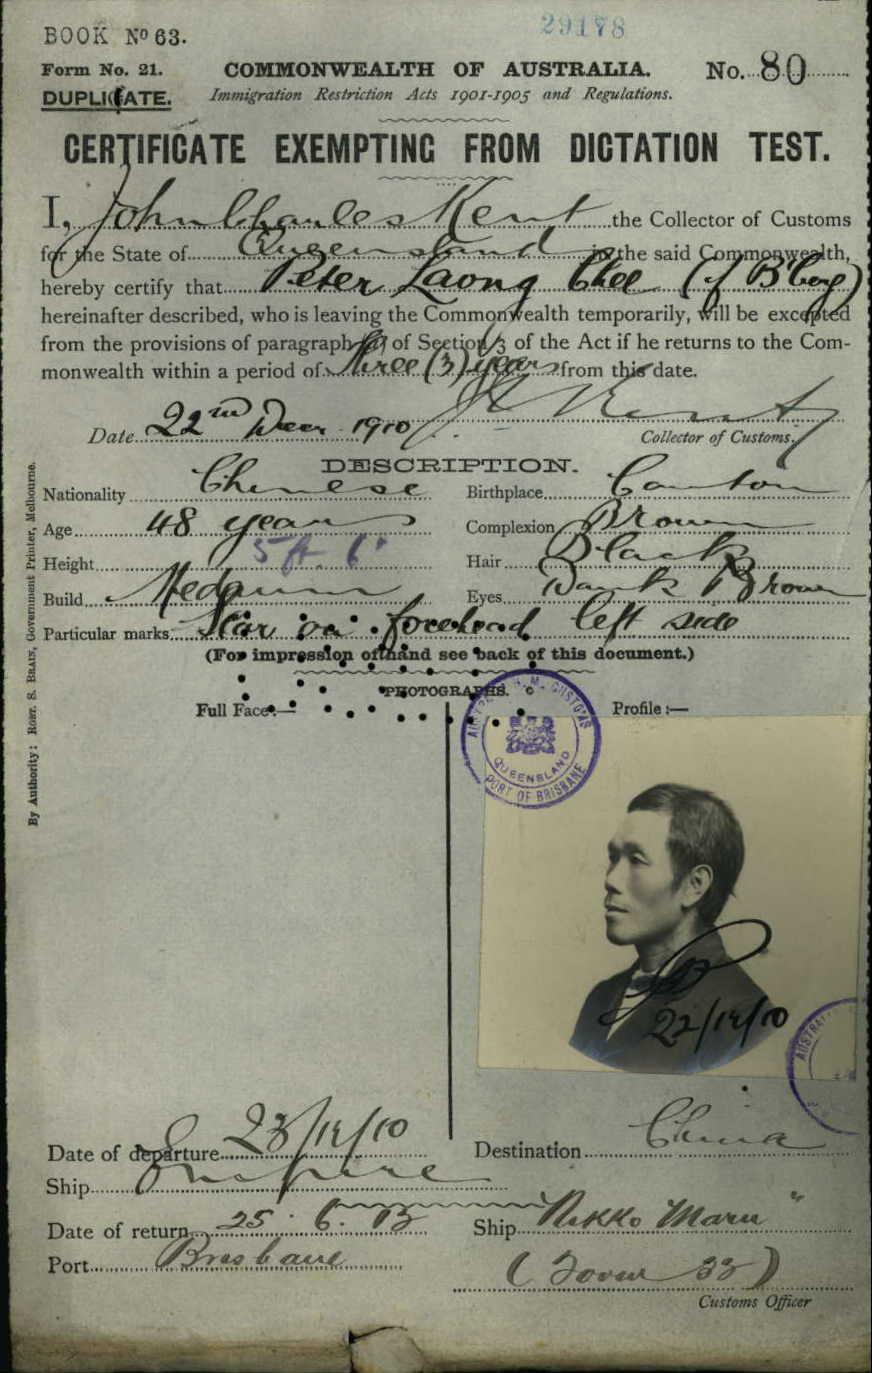 29178
BOOK Nº 63.
Form No. 21. COMMONWEALTH OF AUSTRALIA. No. 80
DUPLICATE. Immigration Restriction Acts 1901-1905 and Regulations.
CERTIFICATE EXEMPTING FROM DICTATION TEST.
I, John Charles Kent the Collector of Customs
for the State of Queensland in the said Commonwealth,
hereby certify that Peter Laong Chee (of B'berg)
hereinafter described, who is leaving the Commonwealth temporarily, will be excepted
from the provisions of paragraph (a) of Section 3 of the Act if he returns to the Com-
monwealth within a period of Three (3) years from this date.
Date 22nd Decr 1910 J C Kent
Collector of Customs.
DESCRIPTION.
Nationality Chinese Birthplace Canton
Age 48 years Complexion Brown
Height 5 ft. 6" Hair Black
Build Medium Eyes Dark Brown
Particular marks Scar on forehead left side
(For impression of hand see back of this document.)
PHOTOGRAPHS.
Full Face:— Profile:—
QUEENSLAND
PORT OF BRISBANE
22/12/10
AUSTRAL
Date of departure 23/12/10 Destination China
Ship Empire
Date of return 25.6.13 Ship Nikko Maru"
Port Brisbane
Customs Officer
By Authority: ROBT. S. BRAIN, Government Printer, Melbourne.